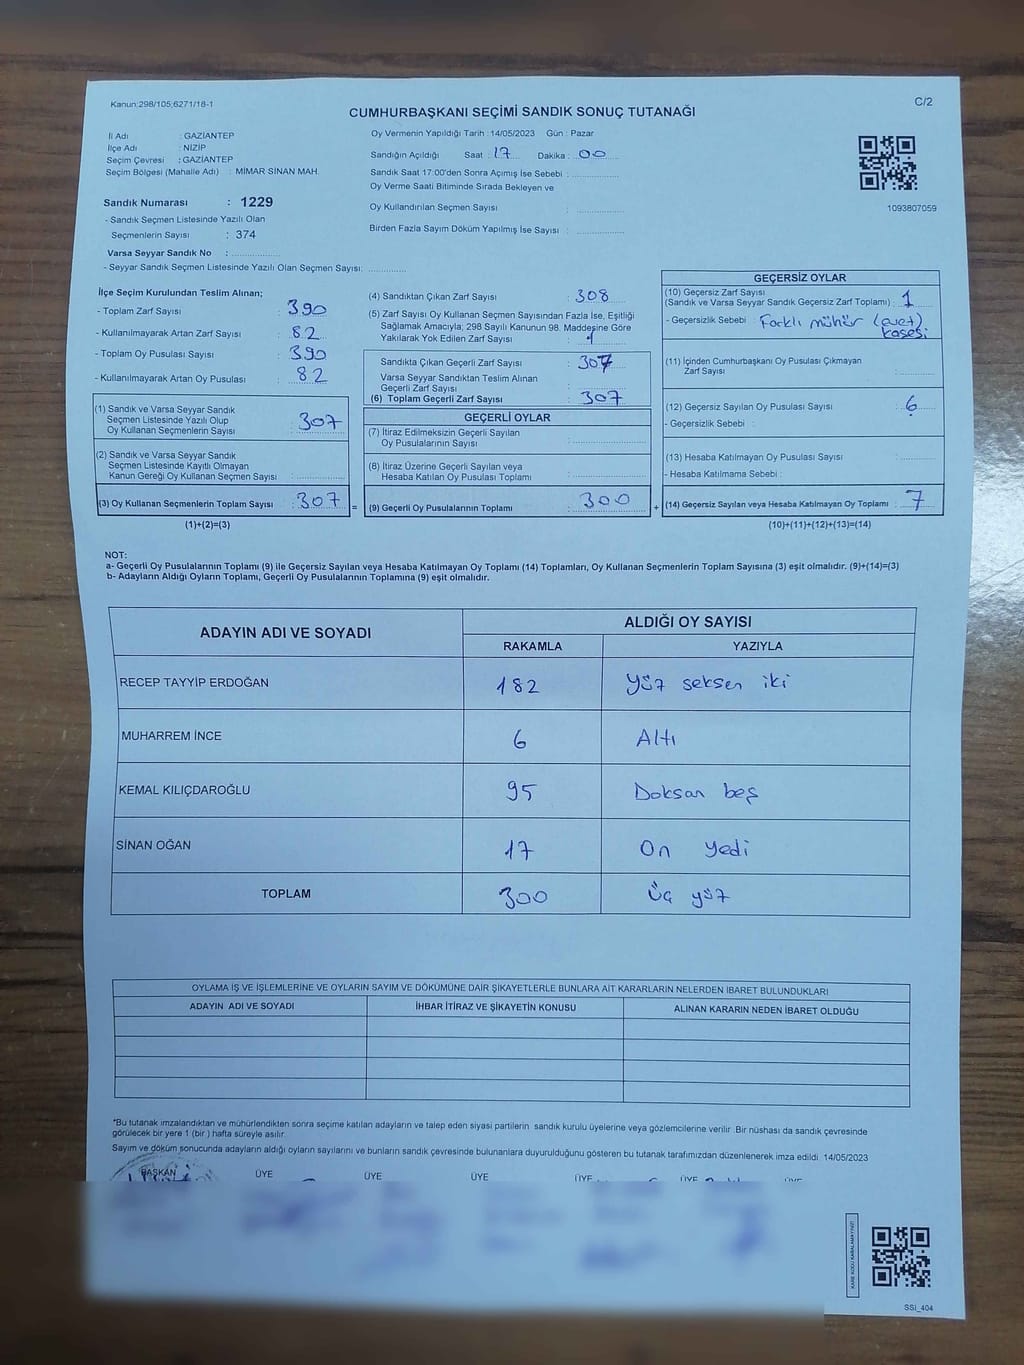 Kanun:298/105;6271/18-1
C/2
CUMHURBAŞKANI SEÇİMİ SANDIK SONUÇ TUTANAĞI
İl Adı : GAZİANTEP
İlçe Adı : NİZİP
Seçim Çevresi : GAZİANTEP
Seçim Bölgesi (Mahalle Adı) : MİMAR SİNAN MAH.
Sandık Numarası : 1229
- Sandık Seçmen Listesinde Yazılı Olan
Seçmenlerin Sayısı : 374
Varsa Seyyar Sandık No :
- Seyyar Sandık Seçmen Listesinde Yazılı Olan Seçmen Sayısı:
Oy Vermenin Yapıldığı Tarih : 14/05/2023 Gün : Pazar
Sandığın Açıldığı Saat : 17 Dakika : 00
Sandık Saat 17:00'den Sonra Açımış İse Sebebi :
Oy Verme Saati Bitiminde Sırada Bekleyen ve
Oy Kullandırılan Seçmen Sayısı :
Birden Fazla Sayım Döküm Yapılmış İse Sayısı :
1093807059
İlçe Seçim Kurulundan Teslim Alınan;
- Toplam Zarf Sayısı : 390
- Kullanılmayarak Artan Zarf Sayısı : 82
- Toplam Oy Pusulası Sayısı : 390
- Kullanılmayarak Artan Oy Pusulası : 82
(1) Sandık ve Varsa Seyyar Sandık
Seçmen Listesinde Yazılı Olup
Oy Kullanan Seçmenlerin Sayısı : 307
(2) Sandık ve Varsa Seyyar Sandık
Seçmen Listesinde Kayıtlı Olmayan
Kanun Gereği Oy Kullanan Seçmen Sayısı :
(3) Oy Kullanan Seçmenlerin Toplam Sayısı : 307
(1)+(2)=(3)
(4) Sandıktan Çıkan Zarf Sayısı : 308
(5) Zarf Sayısı Oy Kullanan Seçmen Sayısından Fazla İse, Eşitliği
Sağlamak Amacıyla; 298 Sayılı Kanunun 98. Maddesine Göre
Yakılarak Yok Edilen Zarf Sayısı : 1
Sandıkta Çıkan Geçerli Zarf Sayısı : 307
Varsa Seyyar Sandıktan Teslim Alınan
Geçerli Zarf Sayısı :
(6) Toplam Geçerli Zarf Sayısı : 307
GEÇERLİ OYLAR
(7) İtiraz Edilmeksizin Geçerli Sayılan
Oy Pusulalarının Sayısı :
(8) İtiraz Üzerine Geçerli Sayılan veya
Hesaba Katılan Oy Pusulası Toplamı :
= (9) Geçerli Oy Pusulalarının Toplamı : 300
GEÇERSİZ OYLAR
(10) Geçersiz Zarf Sayısı
(Sandık ve Varsa Seyyar Sandık Geçersiz Zarf Toplamı) : 1
- Geçersizlik Sebebi : Farklı mühür (evet)
kaşesi
(11) İçinden Cumhurbaşkanı Oy Pusulası Çıkmayan
Zarf Sayısı :
(12) Geçersiz Sayılan Oy Pusulası Sayısı : 6
- Geçersizlik Sebebi :
(13) Hesaba Katılmayan Oy Pusulası Sayısı :
- Hesaba Katılmama Sebebi :
+ (14) Geçersiz Sayılan veya Hesaba Katılmayan Oy Toplamı : 7
(10)+(11)+(12)+(13)=(14)
NOT:
a- Geçerli Oy Pusulalarının Toplamı (9) ile Geçersiz Sayılan veya Hesaba Katılmayan Oy Toplamı (14) Toplamları, Oy Kullanan Seçmenlerin Toplam Sayısına (3) eşit olmalıdır. (9)+(14)=(3)
b- Adayların Aldığı Oyların Toplamı, Geçerli Oy Pusulalarının Toplamına (9) eşit olmalıdır.
ADAYIN ADI VE SOYADI
ALDIĞI OY SAYISI
RAKAMLA YAZIYLA
RECEP TAYYİP ERDOĞAN 182 Yüz seksen iki
MUHARREM İNCE 6 Altı
KEMAL KILIÇDAROĞLU 95 Doksan beş
SİNAN OĞAN 17 On yedi
TOPLAM 300 Üç yüz
OYLAMA İŞ VE İŞLEMLERİNE VE OYLARIN SAYIM VE DÖKÜMÜNE DAİR ŞİKAYETLERLE BUNLARA AİT KARARLARIN NELERDEN İBARET BULUNDUKLARI
ADAYIN ADI VE SOYADI İHBAR İTİRAZ VE ŞİKAYETİN KONUSU ALINAN KARARIN NEDEN İBARET OLDUĞU
*Bu tutanak imzalandıktan ve mühürlendikten sonra seçime katılan adayların ve talep eden siyasi partilerin sandık kurulu üyelerine veya gözlemcilerine verilir .Bir nüshası da sandık çevresinde
görülecek bir yere 1 (bir ) hafta süreyle asılır.
Sayım ve döküm sonucunda adayların aldığı oyların sayılarını ve bunların sandık çevresinde bulunanlara duyurulduğunu gösteren bu tutanak tarafımızdan düzenlenerek imza edildi. 14/05/2023
BAŞKAN ÜYE ÜYE ÜYE ÜYE ÜYE ÜYE
SSİ_404